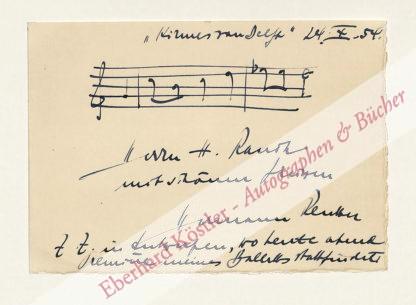 „Kirmes von Delft" 24. X. 54.
Herrn H.
mit schönen
Hermann Reutter
z. Z. in Antwerpen, wo heute abend
Premiere meines Balletts stattfindet
Eberhard Köstler - Autographen & Bücher